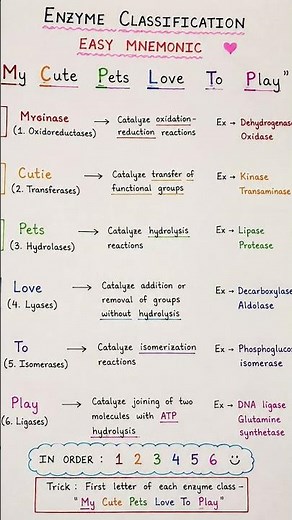 ENZYME CLASSIFICATION
EASY MNEMONIC
My Cute Pets Love To Play”
Myoinase → Catalyze oxidation- Ex → Dehydrogenase
(1. Oxidoreductases) reduction reactions Oxidase
Cutie → Catalyze transfer of Ex → Kinase
(2. Transferases) functional groups Transaminase
Pets → Catalyze hydrolysis Ex → Lipase
(3. Hydrolases) reactions Protease
Love → Catalyze addition or Ex → Decarboxylase
(4. Lyases) removal of groups Aldolase
without hydrolysis
To → Catalyze isomerization Ex → Phosphogluco
(5. Isomerases) reactions isomerase
Play → Catalyze joining of two Ex → DNA ligase
(6. Ligases) molecules with ATP Glutamine
hydrolysis synthetase
IN ORDER : 1 2 3 4 5 6
Trick : First letter of each enzyme class –
"My Cute Pets Love To Play"